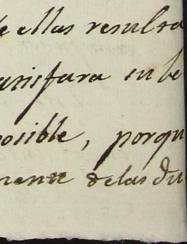 e ellas resulta
anifara en be
posible, porqu
mente de las du